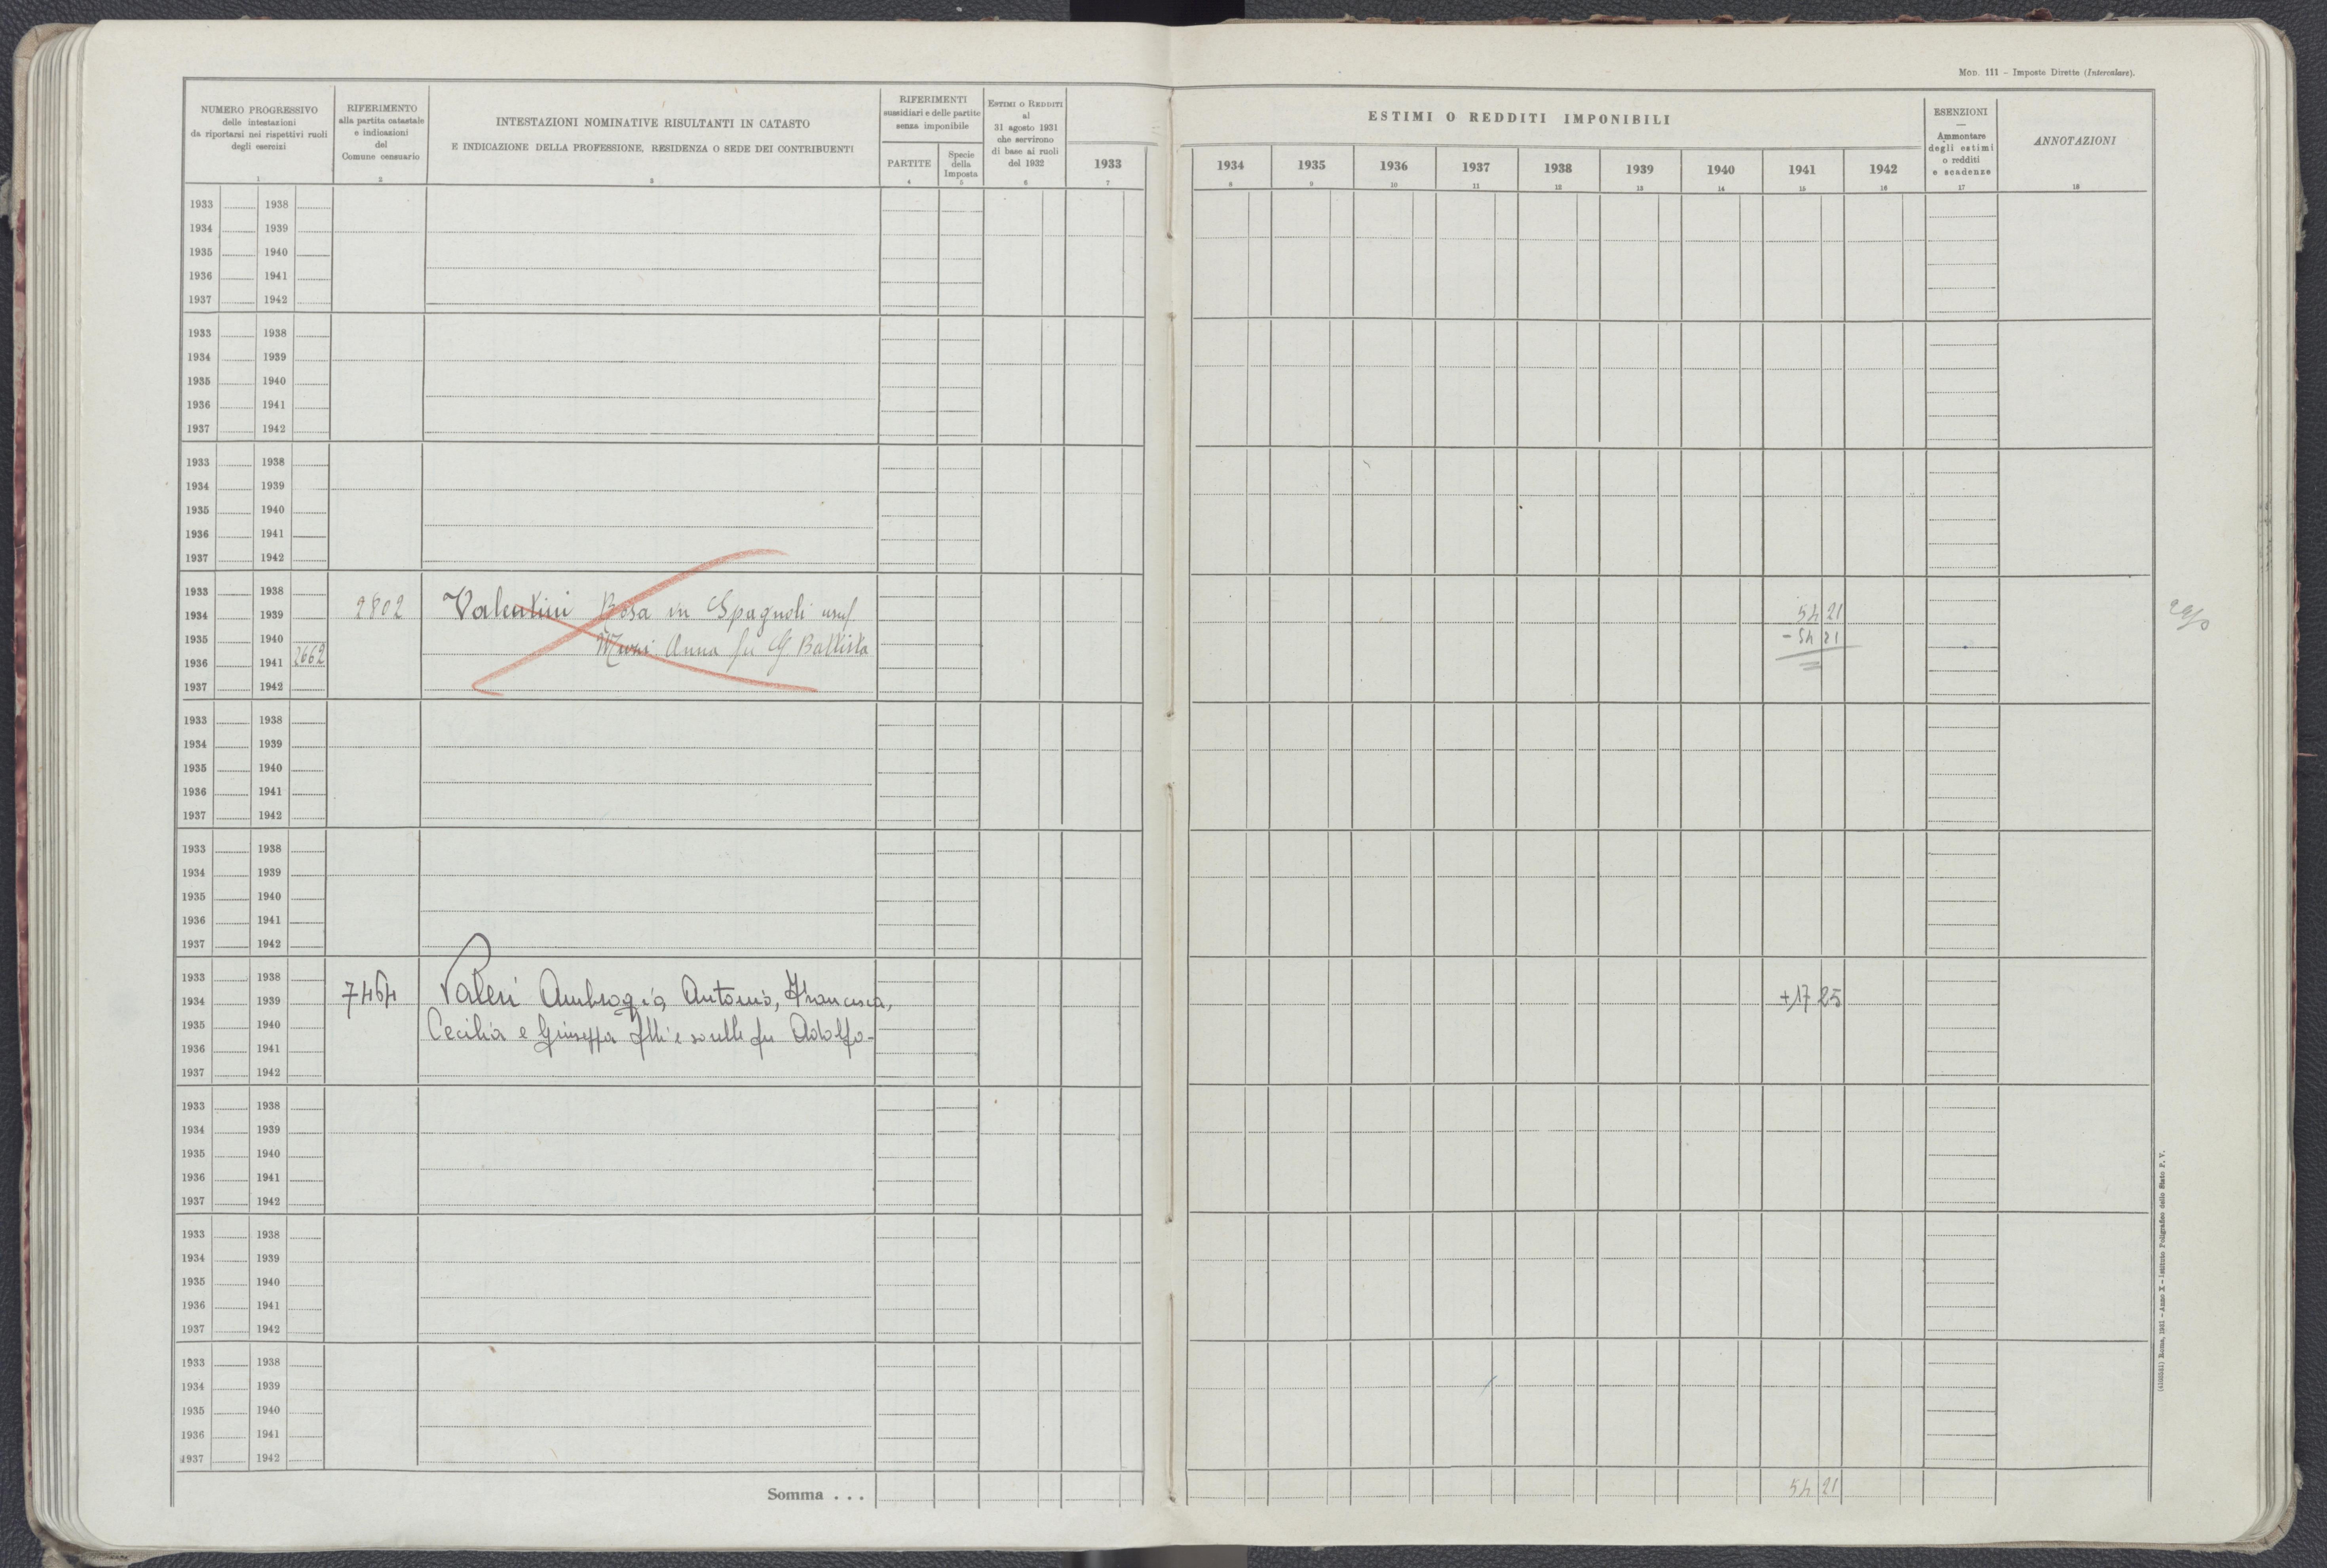 MOD. 111 - Imposte Dirette (Intercalare).
NUMERO PROGRESSIVO
delle intestazioni
da riportarsi nei rispettivi ruoli
degli esercizi
1
RIFERIMENTO
alla partita catastale
e indicazioni
del
Comune censuario
2
INTESTAZIONI NOMINATIVE RISULTANTI IN CATASTO
E INDICAZIONE DELLA PROFESSIONE, RESIDENZA O SEDE DEI CONTRIBUENTI
3
RIFERIMENTI
sussidiari e delle partite
senza imponibile
PARTITE
4
Specie
della
Imposta
5
ESTIMI O REDDITI
al
31 agosto 1931
che servirono
di base ai ruoli
del 1932
6
ESTIMI O REDDITI IMPONIBILI
1933 1934 1935 1936 1937 1938 1939 1940 1941 1942
7 8 9 10 11 12 13 14 15 16
ESENZIONI
—
Ammontare
degli estimi
o redditi
e scadenze
17
ANNOTAZIONI
18
1933 1938
1934 1939
1935 1940
1936 1941
1937 1942
1933 1938
1934 1939
1935 1940
1936 1941
1937 1942
1933 1938
1934 1939
1935 1940
1936 1941
1937 1942
1933 1938
1934 1939 2802 Valentini Rosa in Spagnoli usuf. 54 21
1935 1940 Anna fu G. Battista - 54 21
1936 1941 2662
1937 1942
1933 1938
1934 1939
1935 1940
1936 1941
1937 1942
1933 1938
1934 1939
1935 1940
1936 1941
1937 1942
1933 1938
1934 1939 7464 Valeri Ambrogio, Antonio, Francesca, +17 25
1935 1940 Cecilia e Giuseppa flli e sorelle fu Adolfo-
1936 1941
1937 1942
1933 1938
1934 1939
1935 1940
1936 1941
1937 1942
1933 1938
1934 1939
1935 1940
1936 1941
1937 1942
1933 1938
1934 1939
1935 1940
1936 1941
1937 1942
Somma . . . 54 21
Roma, 1931 - Anno X - Istituto Poligrafico dello Stato P. V.